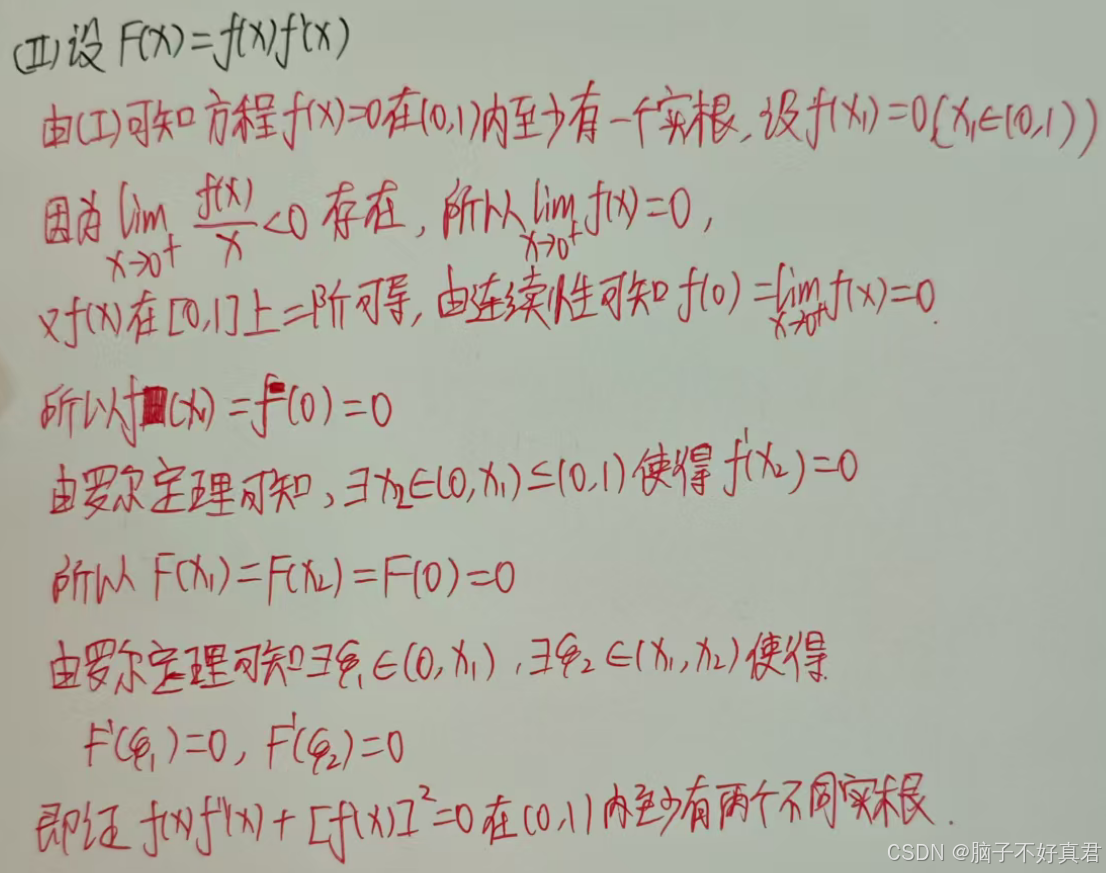 (II)设 F(x)=f(x)f'(x)
由(I)可知方程f(x)=0在(0,1)内至少有一个实根,设f(x₁)=0(x₁∈(0,1))
因为 lim_{x→0⁺} f(x)/x <0 存在, 所以 lim_{x→0⁺} f(x)=0,
又f(x)在[0,1]上二阶可导, 由连续性可知 f(0)=lim_{x→0⁺} f(x)=0.
所以f(x₁)=f(0)=0
由罗尔定理可知,∃x₂∈(0,x₁)⊆(0,1)使得f'(x₂)=0
所以 F(x₁)=F(x₂)=F(0)=0
由罗尔定理可知∃φ₁∈(0,x₁),∃φ₂∈(x₁,x₂)使得
F'(φ₁)=0, F'(φ₂)=0
即证 f(x)f''(x)+[f(x)]²=0在(0,1)内至少有两个不同实根.
CSDN @脑子不好真君